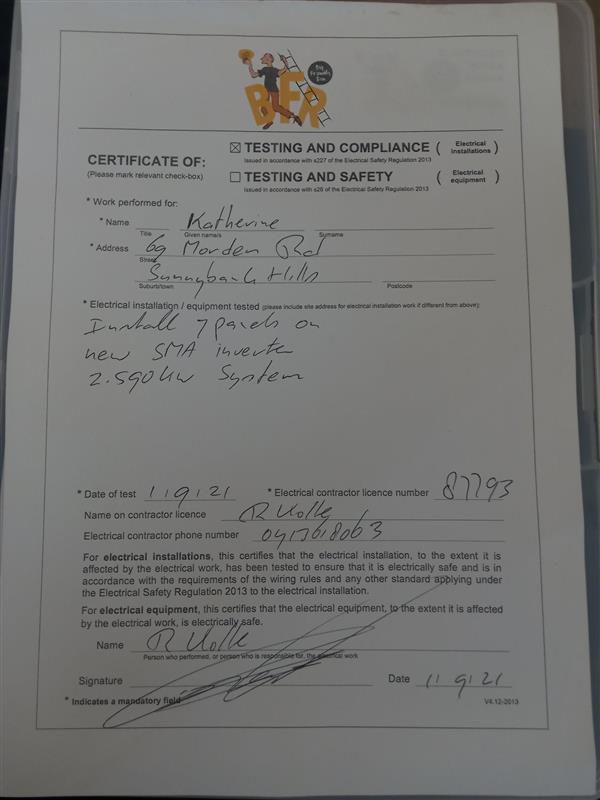 Big
Friendly
Ron
BFR
CERTIFICATE OF:
(Please mark relevant check-box)
☒ TESTING AND COMPLIANCE ( Electrical installations )
Issued in accordance with s227 of the Electrical Safety Regulation 2013
☐ TESTING AND SAFETY ( Electrical equipment )
Issued in accordance with s26 of the Electrical Safety Regulation 2013
* Work performed for:
* Name Katherine
Title Given name/s Surname
* Address 69 Morden Rd
Street
Sunnybank Hills
Suburb/town Postcode
* Electrical installation / equipment tested (please include site address for electrical installation work if different from above):
Install 7 panels on
new SMA inverter
2.590kw System
* Date of test 1 9 21 * Electrical contractor licence number 87793
Name on contractor licence R
Electrical contractor phone number
For electrical installations, this certifies that the electrical installation, to the extent it is
affected by the electrical work, has been tested to ensure that it is electrically safe and is in
accordance with the requirements of the wiring rules and any other standard applying under
the Electrical Safety Regulation 2013 to the electrical installation.
For electrical equipment, this certifies that the electrical equipment, to the extent it is affected
by the electrical work, is electrically safe.
Name R
Person who performed, or person who is responsible for, the electrical work
Signature Date 1 9 21
* Indicates a mandatory field V4.12-2013